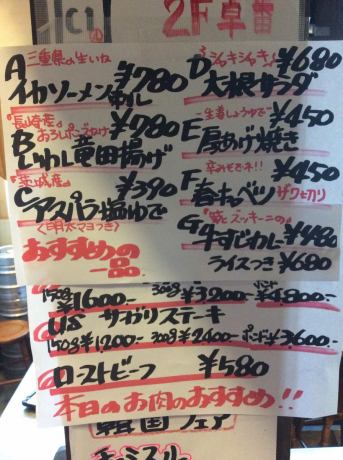 2F卓番
A 三重県の生いね
イカソーメン刺し ¥780
『長崎産』おろしポンズかけ
B いわし竜田揚げ ¥780
『茨城産』
C アスパラ塩ゆで ¥390
(明太マヨつき)
おすすめの一品
『シャキシャキ』
D 大根サラダ ¥680
生姜しょうゆで
E 厚あげ焼き ¥450
辛みそでネ!!
F 春キャベツ ザク切り ¥450
ズッキーニの』
G 牛すじカレー ¥480
ライスつき ¥680
150g ¥1600- 300g ¥3200- ポンド ¥4800-
US サガリステーキ
150g ¥1200- 300g ¥2400- ポンド ¥3,600-
ローストビーフ ¥580
本日のお肉のおすすめ!!
韓国フェア